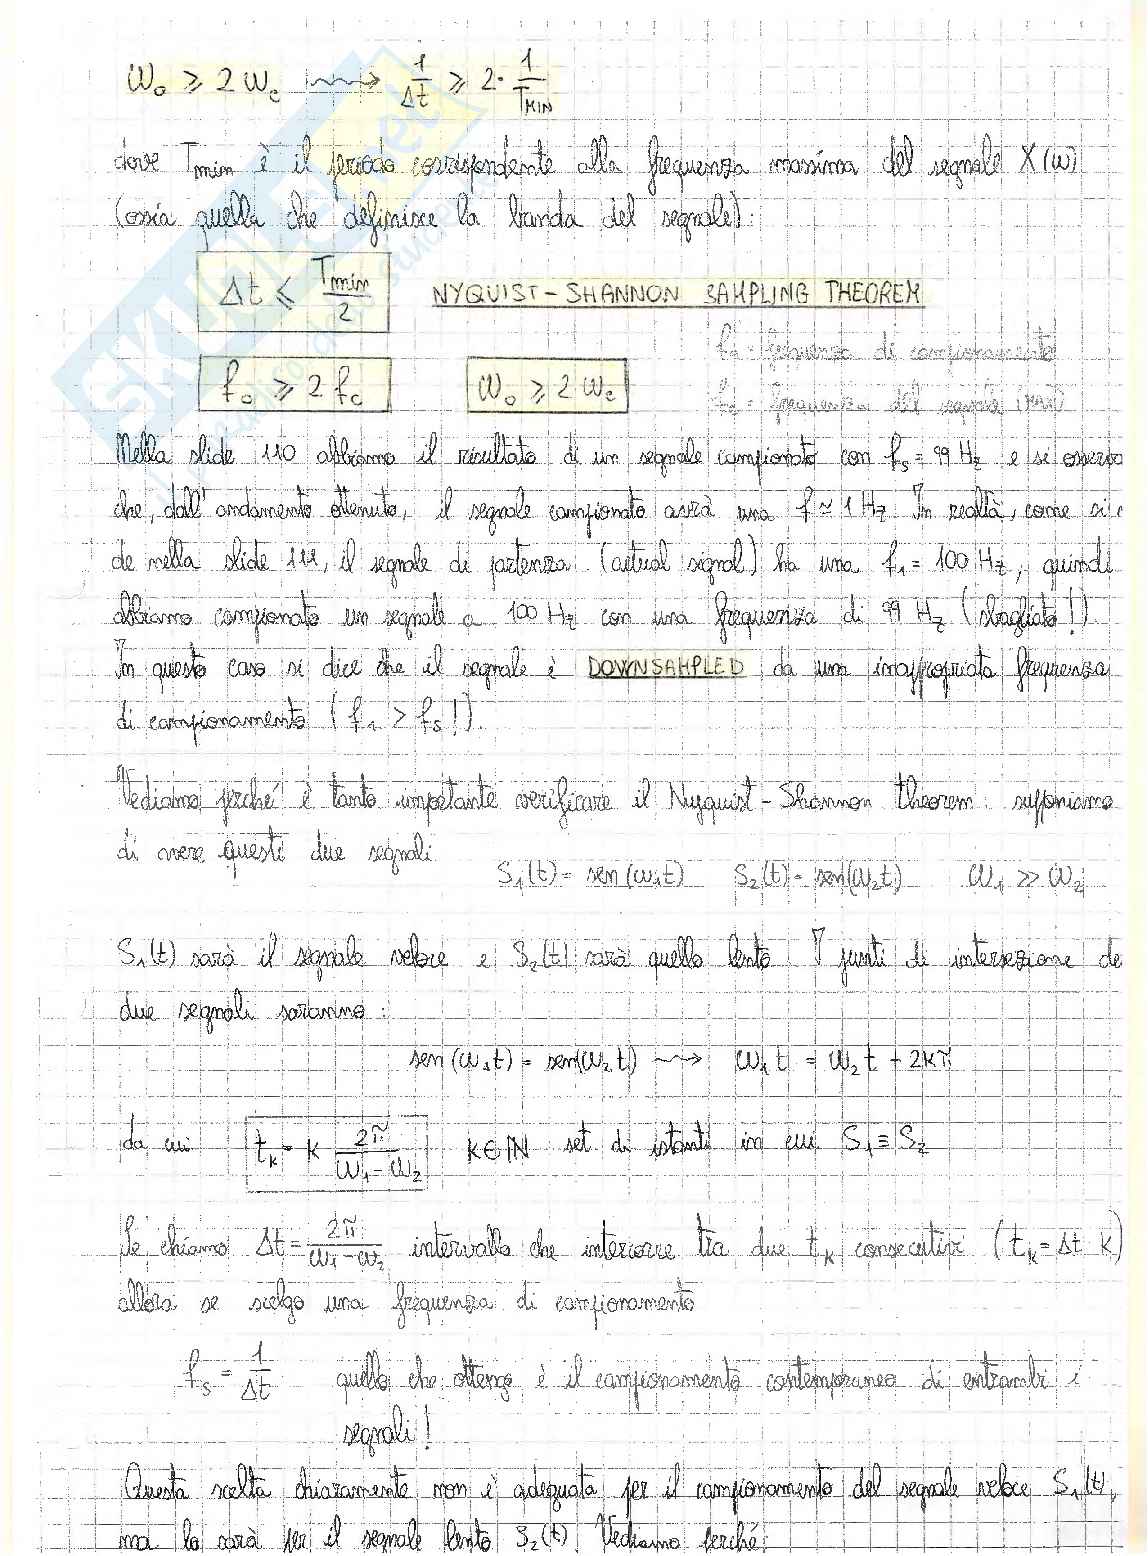 ω₀ ⩾ 2 ωc ⟿ 1/Δt ⩾ 2· 1/TMIN
dove Tmin è il periodo corrispondente alla frequenza massima del segnale X(ω)
(ossia quella che definisce la banda del segnale):
Δt ⩽ Tmin/2 NYQUIST-SHANNON SAMPLING THEOREM
frequenza di campionamento
f₀ ⩾ 2 fc ω₀ ⩾ 2 ωc
frequenza del segnale (max)
Nella slide 110 abbiamo il risultato di un segnale campionato con fs = 99 Hz e si osserva
che, dall'andamento ottenuto, il segnale campionato avrà una f ≃ 1 Hz. In realtà, come si v
de nella slide 111, il segnale di partenza (actual signal) ha una f₁ = 100 Hz, quindi
abbiamo campionato un segnale a 100 Hz con una frequenza di 99 Hz (sbagliato!).
In questo caso si dice che il segnale è DOWNSAMPLED da una inappropriata frequenza
di campionamento (f₁ > fs!).
Vediamo perché è tanto importante verificare il Nyquist-Shannon theorem: supponiamo
di avere questi due segnali
S₁(t) = sen(ω₁t) S₂(t) = sen(ω₂t) ω₁ ≫ ω₂
S₁(t) sarà il segnale veloce e S₂(t) sarà quello lento. I punti di intersezione de
due segnali saranno:
sen(ω₁t) = sen(ω₂t) ⟿ ω₁t = ω₂t + 2kπ
da cui tk = k 2π/(ω₁-ω₂) k∈ℕ set di istanti in cui S₁ ≡ S₂
Se chiamo Δt = 2π/(ω₁-ω₂) intervallo che intercorre tra due tk consecutivi (tk = Δt k)
allora se scelgo una frequenza di campionamento
fs = 1/Δt quello che ottengo è il campionamento contemporaneo di entrambi i
segnali!
Questa scelta chiaramente non è adeguata per il campionamento del segnale veloce S₁(t),
ma lo sarà per il segnale lento S₂(t). Vediamo perché: